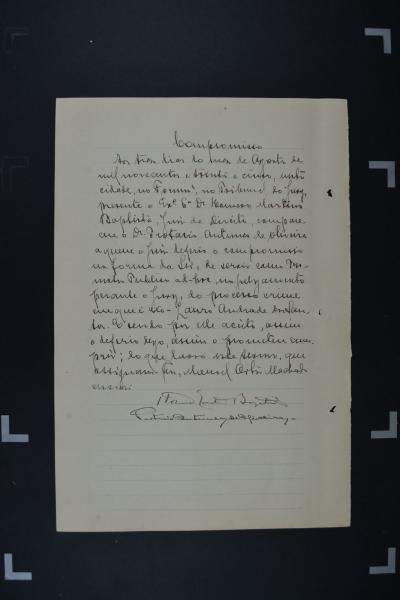 Compromisso
Aos tres dias do mez de Agosto de
mil novecentos e trinta e cinco, nesta
cidade, no Forum, no Tribunal do Jury,
presente o Exº Sr. Dr. Martins
Baptista, Juiz de Direito, compare
ceu o Dr. Protasio Antunes de Oliveira
a quem o Juiz deferio o compromisso
na forma da Lei, de servir como Pro
motor Publico ad-hoc, no julgamento
perante o Jury, do processo crime
em que é réo Lauro Andrade dos San
tos. E sendo por elle aceito, assim
o deferio digo, assim o prometteu cum
prir; do que lavro este termo, que
assignam. Eu, Manoel Machado
escrevi